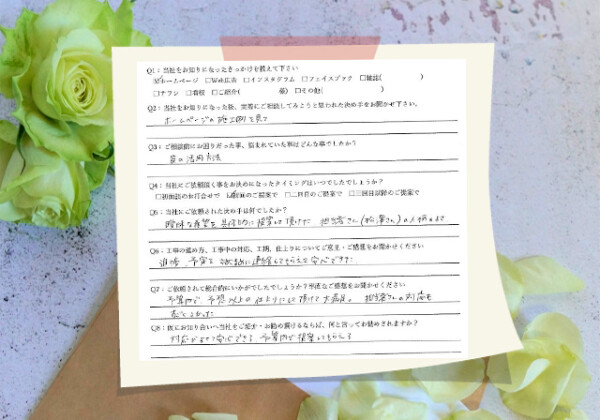 Q1：当社をお知りになったきっかけを教えて下さい
☑ホームページ □Web広告 □インスタグラム □フェイスブック □雑誌( )
□チラシ □看板 □ご紹介( 様) □その他( )
Q2：当社をお知りになった後、実際にご相談してみようと思われた決め手をお聞かせ下さい。
ホームページの施工例を見て
Q3：ご相談前にお困りだった事、悩まれていた事はどんな事でしたか？
庭の活用方法
Q4：当社にご依頼頂く事をお決めになったタイミングはいつでしたでしょうか？
□初回のお打合せで ☑初回のご提案で □二回目のご提案で □三回目以降のご提案で
Q5：当社にご依頼された決め手は何でしたか？
曖昧な希望を具体的に提案して頂けた 担当者さん(さん)の人柄のよさ
Q6：工事の進め方、工事中の対応、工期、仕上りについてご意見・ご感想をお聞かせください
進捗、予定を連絡してもらえて安心できた。
Q7：ご依頼されて総合的にいかがでしたでしょうか？率直なご感想をお聞かせください
予算内で、予想以上の仕上りにして頂けて大満足。担当者さんの対応も
よかった
Q8：仮にお知り合いへ当社をご紹介・お勧め頂けるならば、何と言ってお勧めされますか？
対応がよくて安心できる、予算内で提案してもらえる